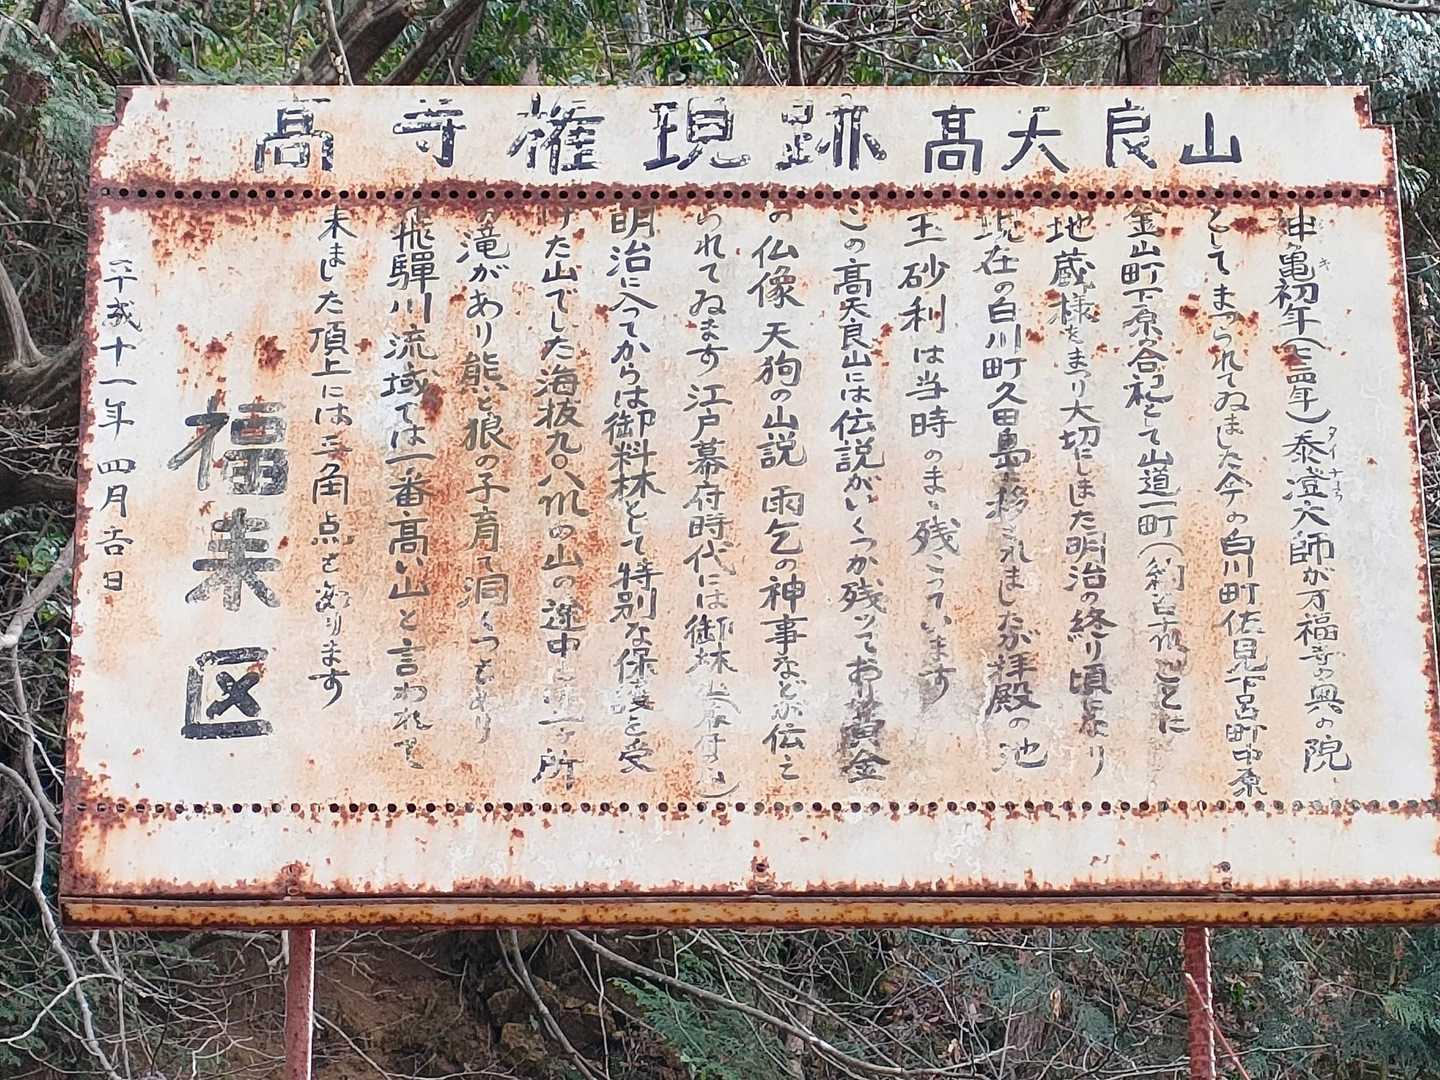 高寺権現跡 高天良山
神亀初年(七二四年)泰澄大師が万福寺の奥の院
としてまつられてゐました今の白川町佐見下呂町中原
金山町下原の合祀として山道一町(約百十米)ごとに
地蔵様をまつり大切にしました明治の終り頃になり
現在の白川町久田島に移されましたが拝殿の池
玉砂利は当時のまゝ残っています
この高天良山には伝説がいくつか残っており黄金
の仏像 天狗の山説 雨乞の神事などが伝え
られてゐます江戸幕府時代には御林
明治に入ってからは御料林として特別な保護を受
けた山でした海抜九〇八米の山の途中 所
の滝があり熊と狼の子育て洞くつもあり
飛驒川流域では一番高い山と言われて
来ました頂上には三角点もあります
福来区
平成十一年四月吉日